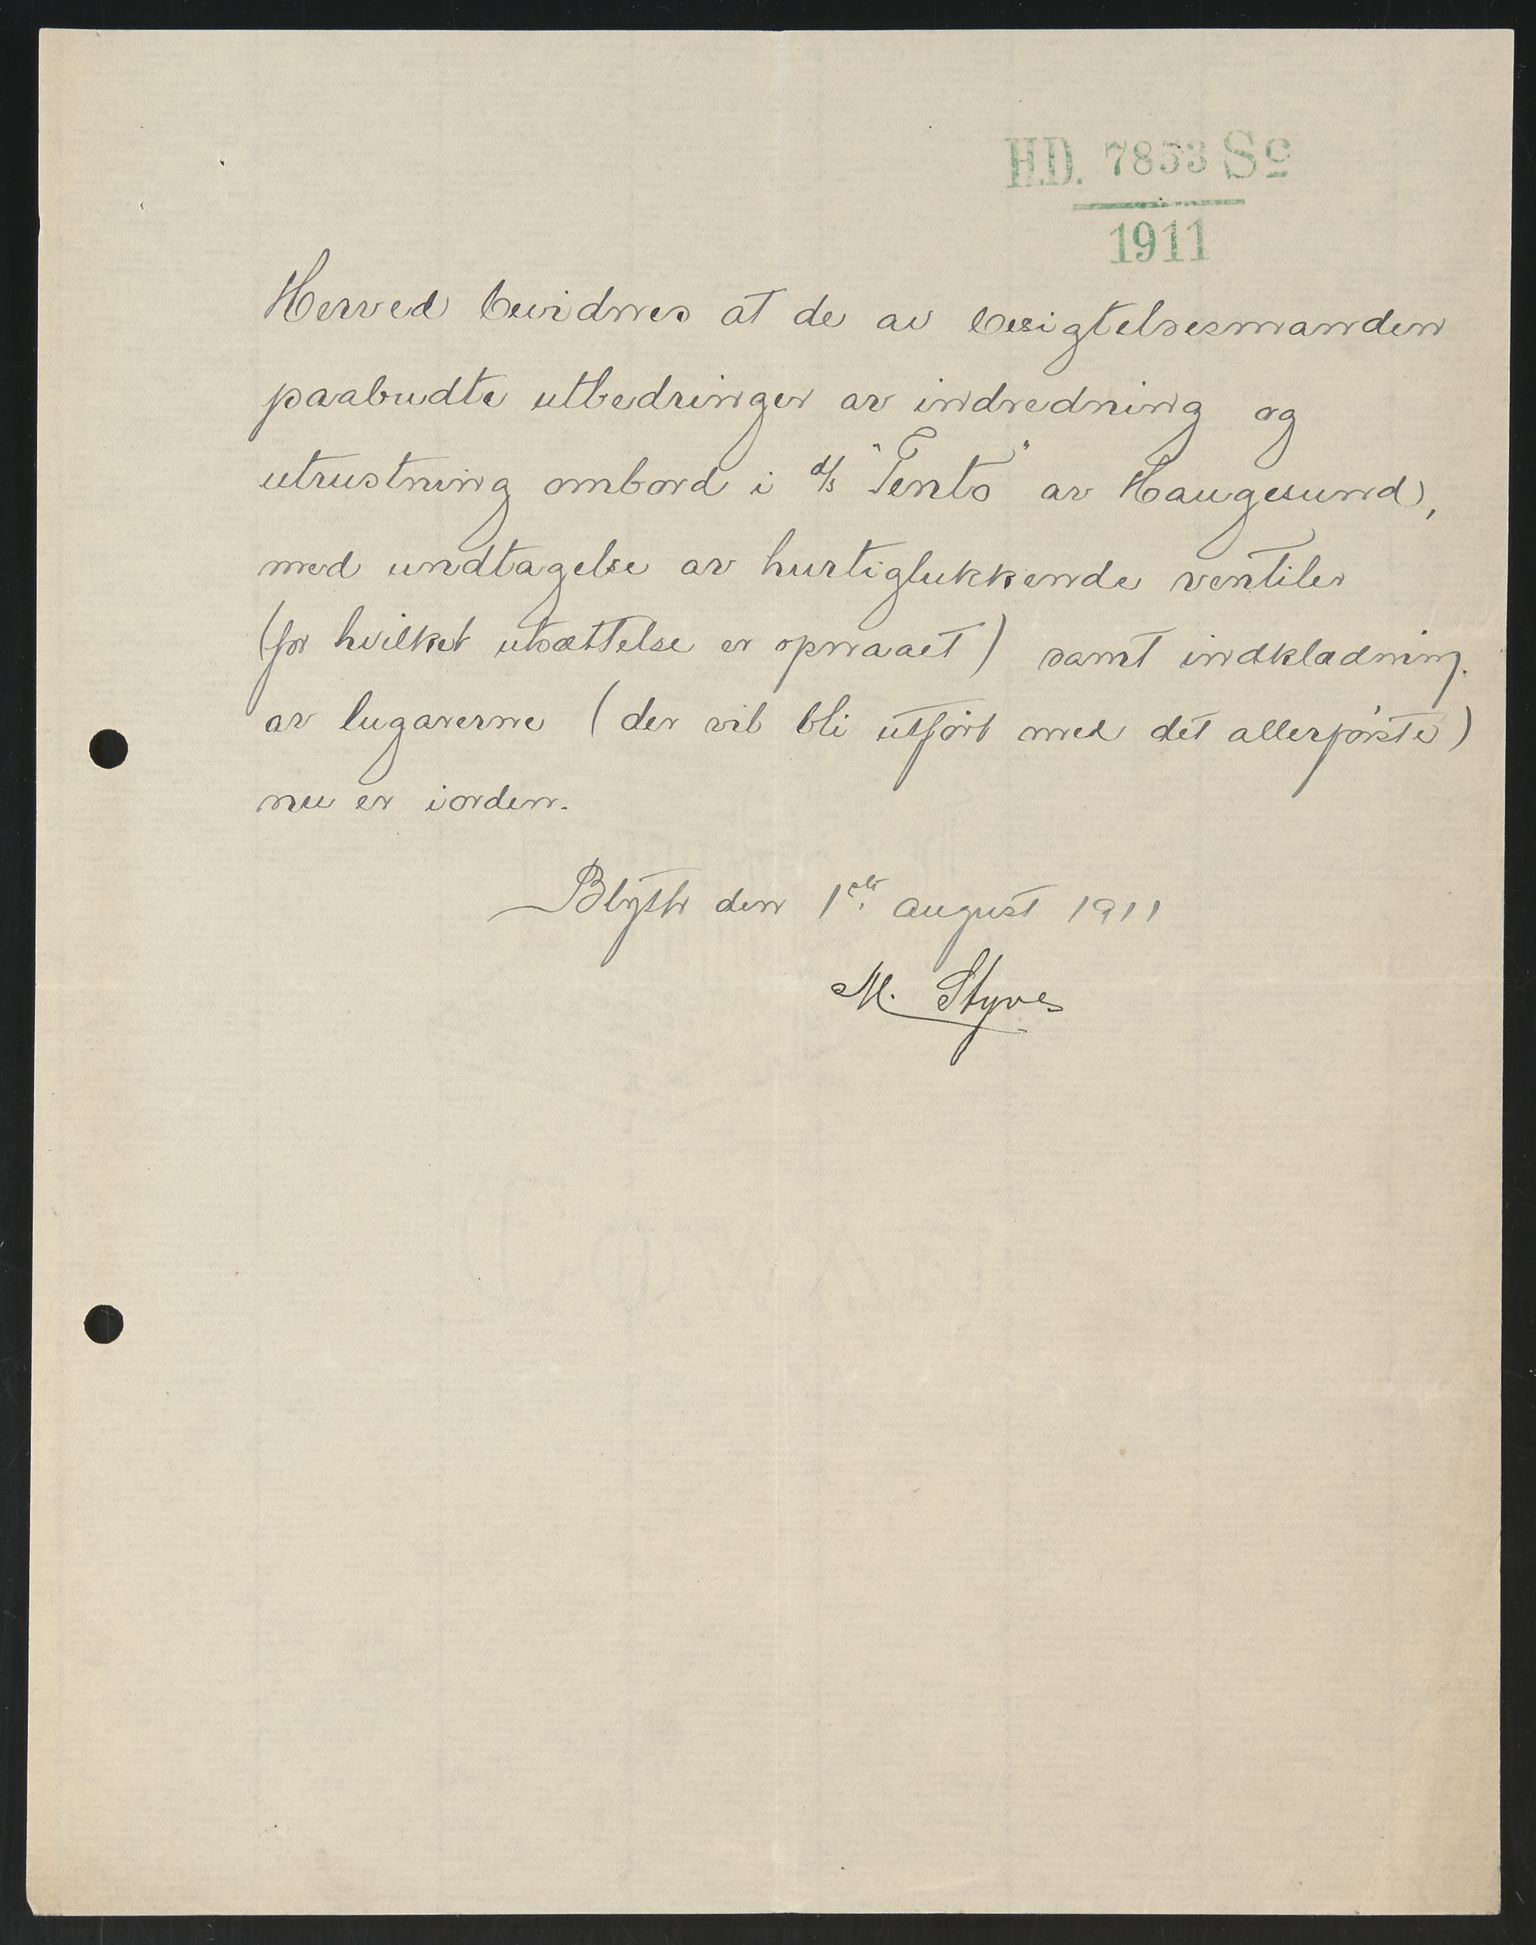 H.D. 7853 Sc
1911
Herved bevidnes at de av besigtelsesmanden
paabudte utbedringer av indredning og
utrustning ombord i d/s "Tento" av Haugesund,
med undtagelse av hurtiglukkende ventiler
(for hvilket utsættelse er opnaaet) samt indklædning
av lugarerne (der vil bli utført med det allerførste)
nu er iorden.
Blyth den 1ste august 1911
M. Styve